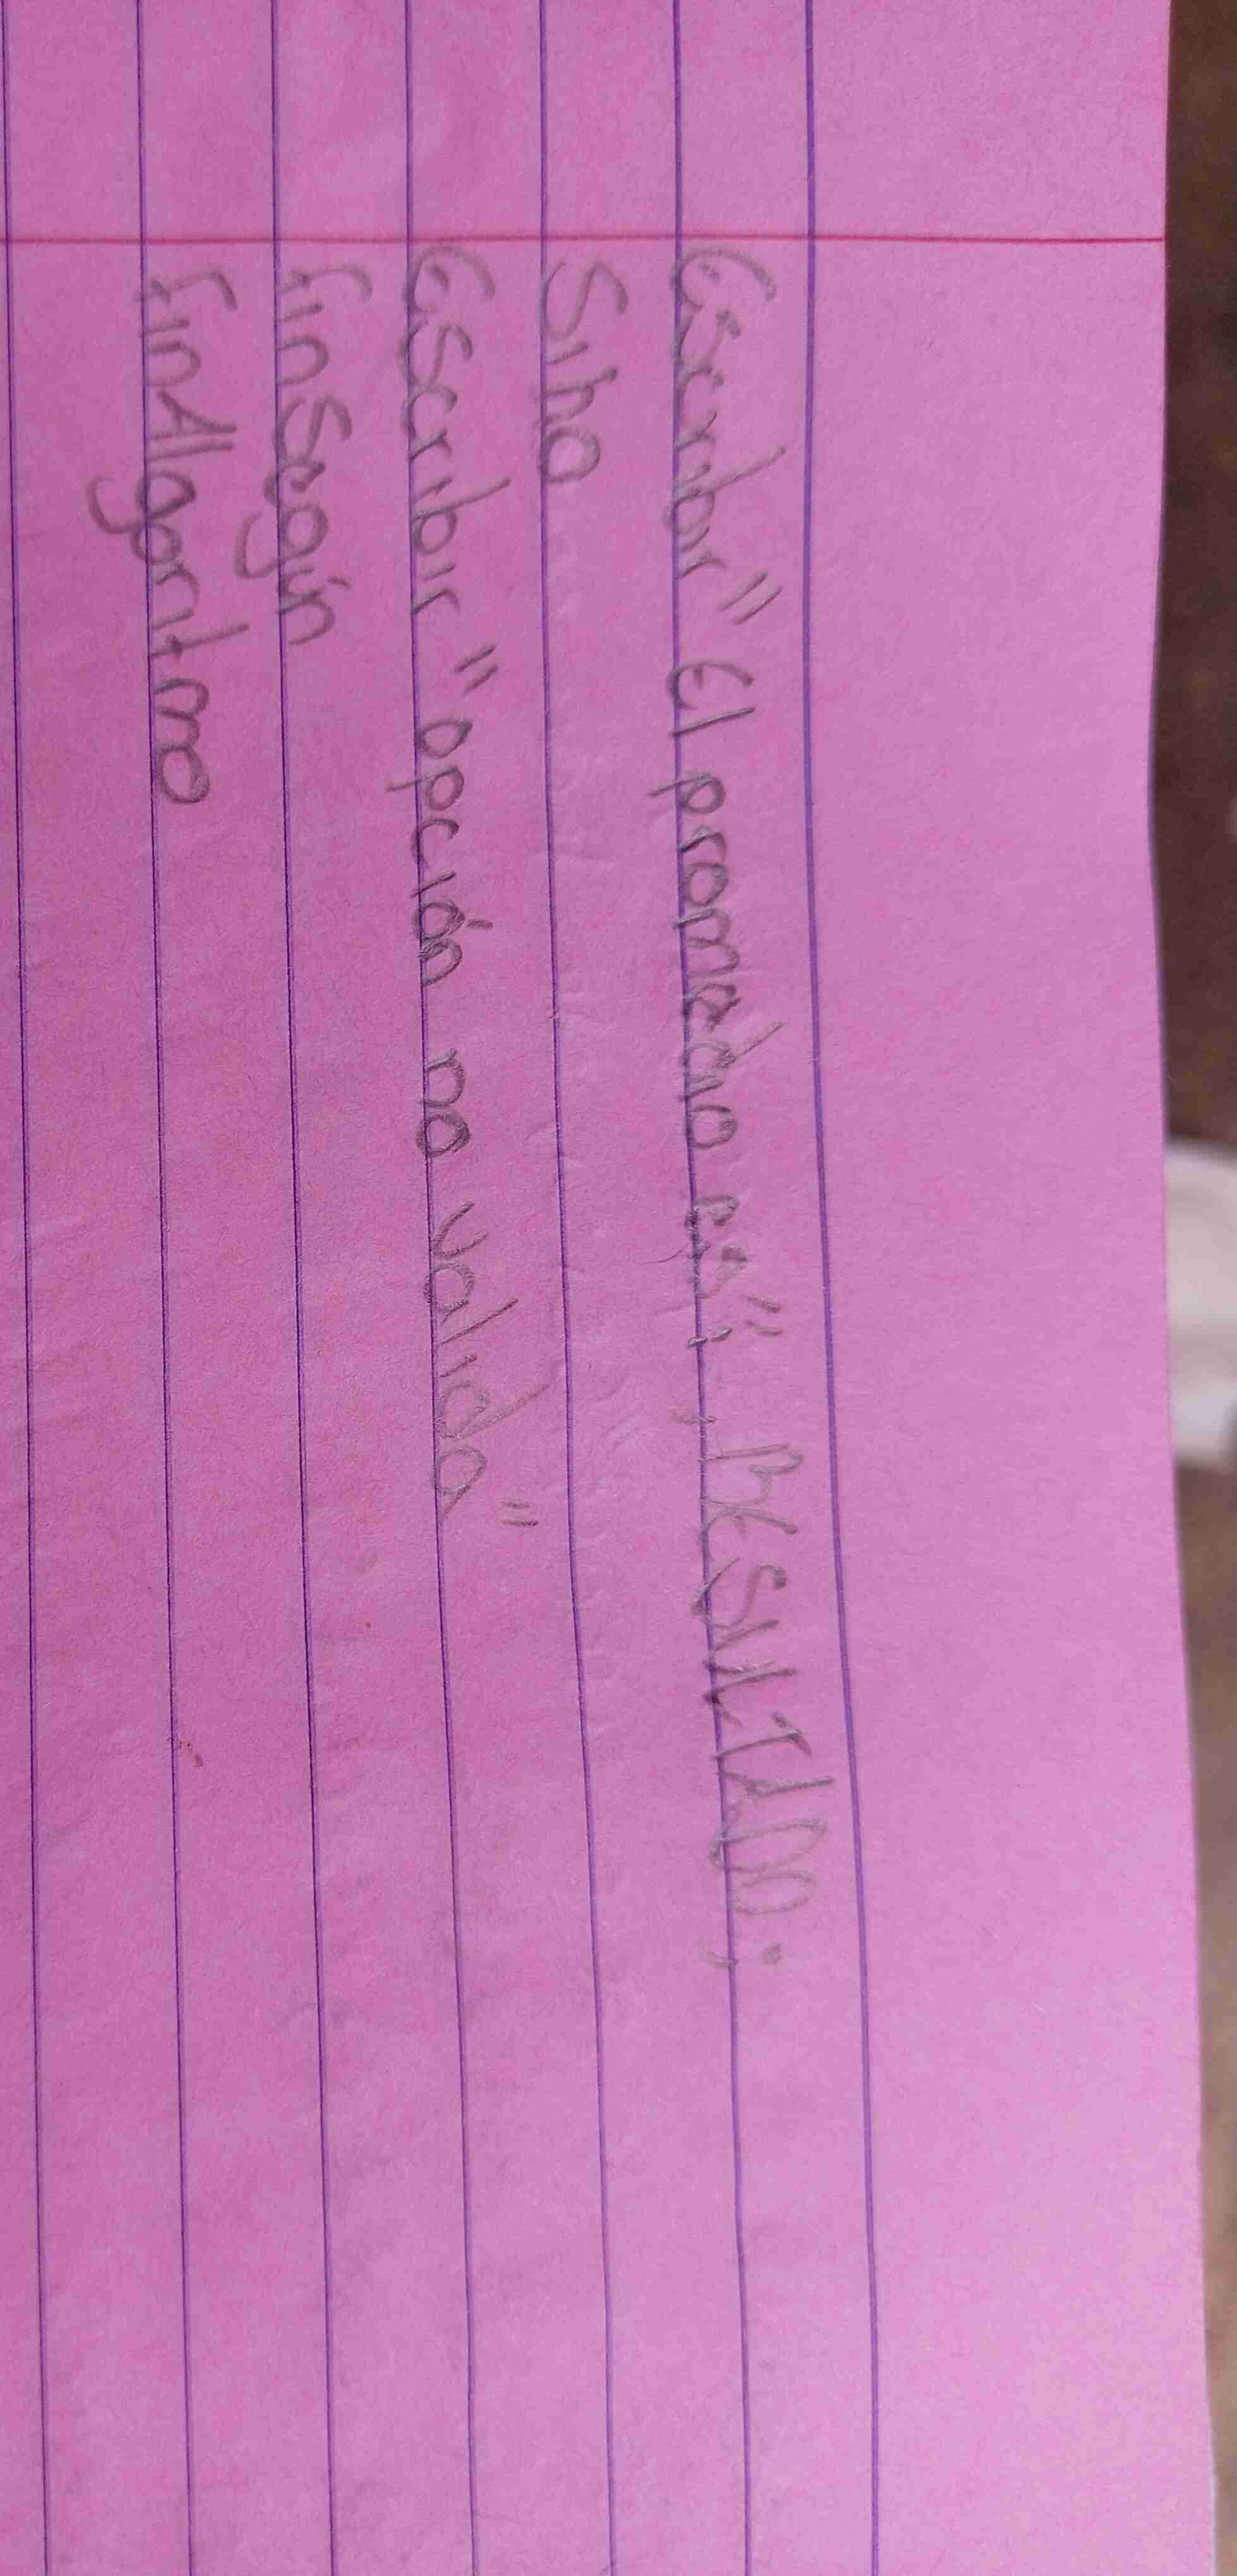 Escribir "El promedio es:", RESULTADO;
Sino
Escribir "opción no valida"
FinSegún
FinAlgoritmo